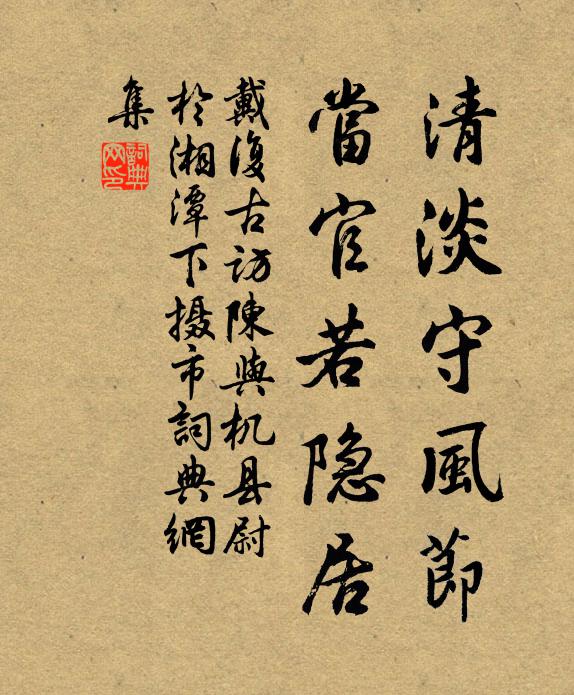 清淡守風節
當官若隐居
戴復古访陳與机县尉
於湘潭下摄市詞典網
集
詞典網印